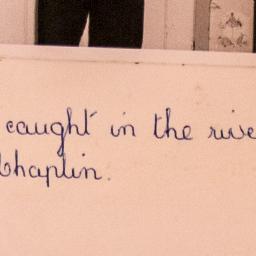 caught in the rive
Chaplin.